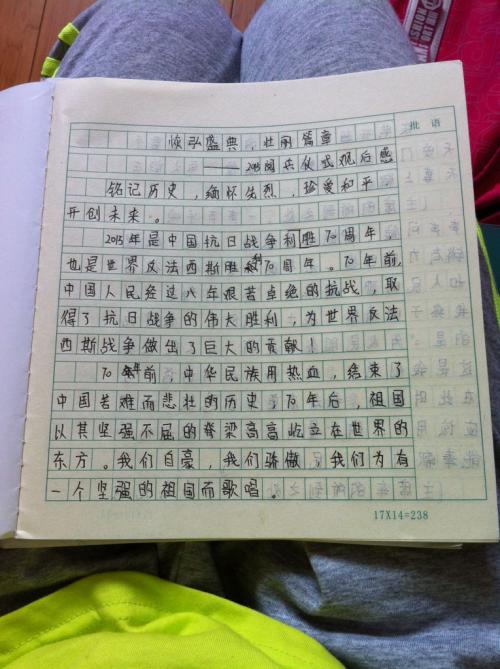 批语
恢弘盛典,壮丽篇章
——2015阅兵仪式观后感
铭记历史,缅怀先烈,珍爱和平,
开创未来。
2015年是中国抗日战争利胜70周年,
也是世界反法西斯胜利70周年。70年前,
中国人民经过八年艰苦卓绝的抗战,取
得了抗日战争的伟大胜利,为世界反法
西斯战争做出了巨大的贡献!
70年前,中华民族用热血,结束了
中国苦难而悲壮的历史,70年后,祖国
以其坚强不屈的脊梁高高屹立在世界的
东方。我们自豪,我们骄傲,我们为有
一个坚强的祖国而歌唱。
17X14=238
FASHION